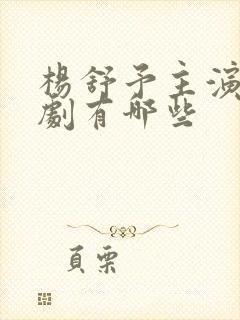 楊舒予主演
劇有哪些
頁栗